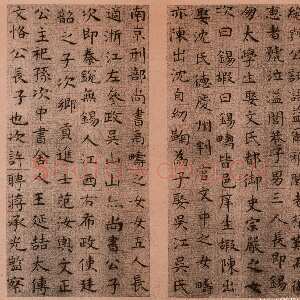 憲考號泣溢閭巷子男三人長即錫
幼太學生娶文氏都御史宗嚴之女
次曰錫嘏曰錫疇皆邑庠生嘏陳出
娶沈氏德慶州判官文中之女疇
亦陳出沈自幼鞠為子娶吳江吳氏
南京刑部尚書禹疇之女女五人長
適浙江左參政吳山山亦尚書公子
次即秦銳無錫人江西右布政使廷
韶之子次鄉貢進士范汝輿文正
公主祀孫次中書舍人王延喆太傅
文恪公長子也次許聘蔣承光監察